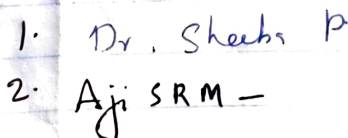 1. Dr. Sheeba P
2. Aji SRM –